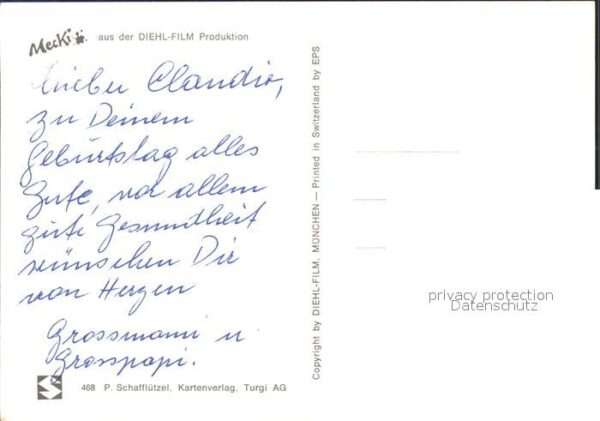 Mecki aus der DIEHL-FILM Produktion
Lieber Claudio,
zu Deinem
Geburtstag alles
Gute, vor allem
gute Gesundheit
wünschen Dir
von Herzen
Grossmami u
Grosspapi.
468 P. Schafflützel, Kartenverlag, Turgi AG
Copyright by DIEHL-FILM, MÜNCHEN — Printed in Switzerland by EPS
privacy protection
Datenschutz